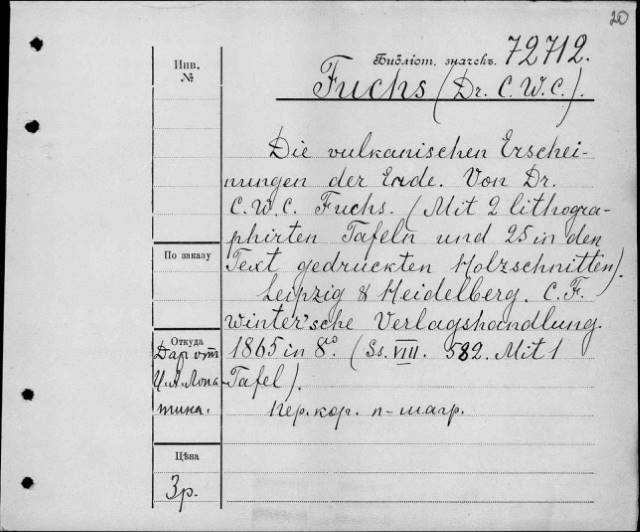 20
Библіот. значекъ. 72712.
Инв.
№
Fuchs (Dr. C. W. C.).
Die vulkanischen Erschei-
nungen der Erde. Von Dr.
C. W. C. Fuchs. (Mit 2 lithogra-
phirten Tafeln und 25 in den
По заказу
Text gedruckten Holzschnitten).
Leipzig & Heidelberg. C. F.
Winter'sche Verlagshandlung.
Откуда
Дар отъ
И. А. Лопа-
тина.
1865 in 8º. (Ss. VIII. 582. Mit 1
Tafel).
Пер. кор. п-шагр.
Цѣна
3 р.